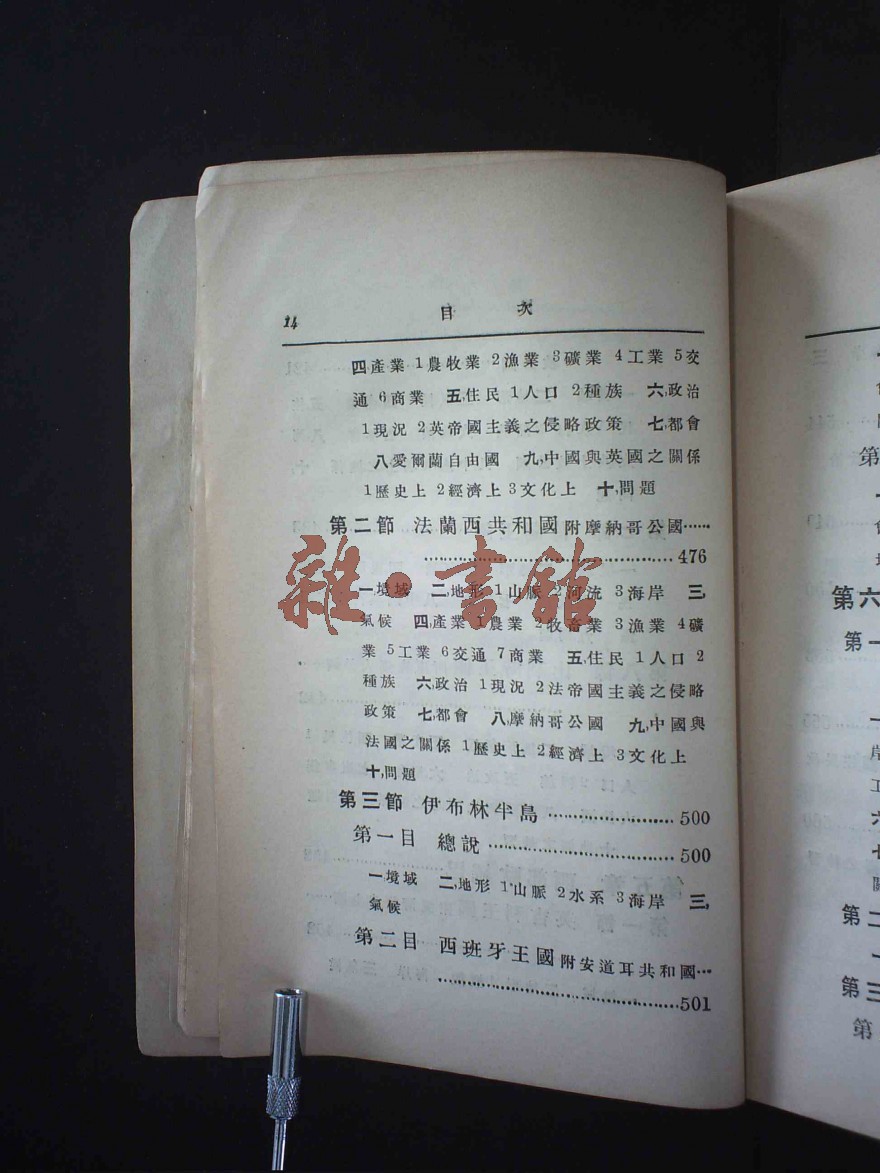 14 目次
四,產業 1農牧業 2漁業 3礦業 4工業 5交
通 6商業 五,住民 1人口 2種族 六,政治
1現况 2英帝國主義之侵略政策 七,都會
八,愛爾蘭自由國 九,中國與英國之關係
1歷史上 2經濟上 3文化上 十,問題
第二節 法蘭西共和國附摩納哥公國……
……………………………476
一,境域 二,地形 1山脈 2河流 3海岸 三,
氣候 四,產業 1農業 2牧畜業 3漁業 4礦
業 5工業 6交通 7商業 五,住民 1人口 2
種族 六,政治 1現況 2法帝國主義之侵略
政策 七,都會 八,摩納哥公國 九,中國與
法國之關係 1歷史上 2經濟上 3文化上
十,問題
第三節 伊布林半島………………500
第一目 總說……………………500
一,境域 二,地形 1山脈 2水系 3海岸 三,
氣候
第二目 西班牙王國附安道耳共和國…
……………………………501
雜·書館
第六
第一
第二
第三
第